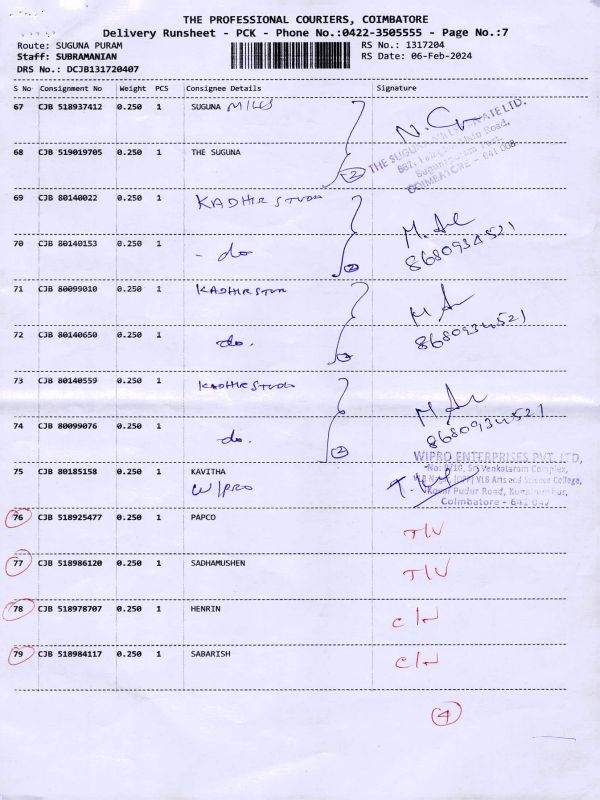 THE PROFESSIONAL COURIERS, COIMBATORE
Delivery Runsheet - PCK - Phone No.:0422-3505555 - Page No.:7
Route: SUGUNA PURAM
RS No.: 1317204
Staff: SUBRAMANIAN
RS Date: 06-Feb-2024
DRS No.: DCJB131720407
S No Consignment No Weight PCS Consignee Details Signature
67 CJB 518937412 0.250 1 SUGUNA MILLS
68 CJB 519019705 0.250 1 THE SUGUNA
COIMBATORE - 641 008
2
69 CJB 80140022 0.250 1 KADHIR STUDIO
70 CJB 80140153 0.250 1 - do
8680934521
2
71 CJB 80099010 0.250 1 KADHIR
72 CJB 80140650 0.250 1 do.
8680934521
2
73 CJB 80140559 0.250 1 KADHIR STUDIO
74 CJB 80099076 0.250 1 do.
8680934521
2
WIPRO ENTERPRISES PVT. LTD,
75 CJB 80185158 0.250 1 KAVITHA
WIPRO
Venkataram Complex,
VLB Arts and Science College,
Pudur Road,
Coimbatore - 641
76 CJB 518925477 0.250 1 PAPCO
77 CJB 518986120 0.250 1 SADHAMUSHEN
78 CJB 518978707 0.250 1 HENRIN
79 CJB 518984117 0.250 1 SABARISH
4